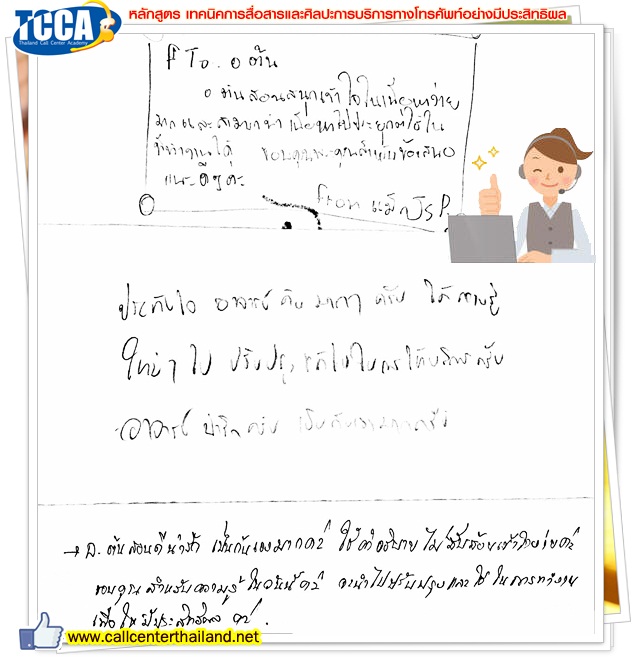 TCCA
Thailand Call Center Academy
หลักสูตร เทคนิคการสื่อสารและศิลปะการบริการทางโทรศัพท์อย่างมีประสิทธิผล
To. อ ต้น
อ ต้นสอนสนุกเข้าใจในเนื้อหาง่าย
มากและสามารถนำเนื้อหาไปประยุกต์ใช้ใน
ขอบคุณพระคุณสำหรับข้อเสนอ
แนะดีๆค่ะ
From
ประทับใจ อาจารย์ ต้น มากๆ ครับ ได้ความรู้
ใหม่ๆ ไป ปรับปรุง แก้ไขในการให้บริการครับ
อาจารย์ น่ารักครับ เป็นกันเองมากครับ
→ อ. ต้นสอนดีน่ารัก เป็นกันเองมากค่ะ ใช้คำอธิบาย ไม่ซับซ้อนเข้าใจง่ายค่ะ
ขอบคุณ สำหรับความรู้ ในวันนี้ค่ะ จะนำไปปรับปรุงและใช้ ในการทำงาน
เพื่อให้มีประสิทธิผล ค่ะ.
www.callcenterthailand.net